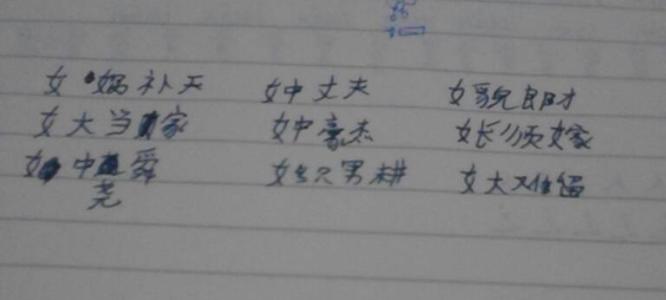 女娲补天 女中丈夫 女貌郎才
女大当家 女中豪杰 女长须嫁
女中尧舜 女织男耕 女大难留